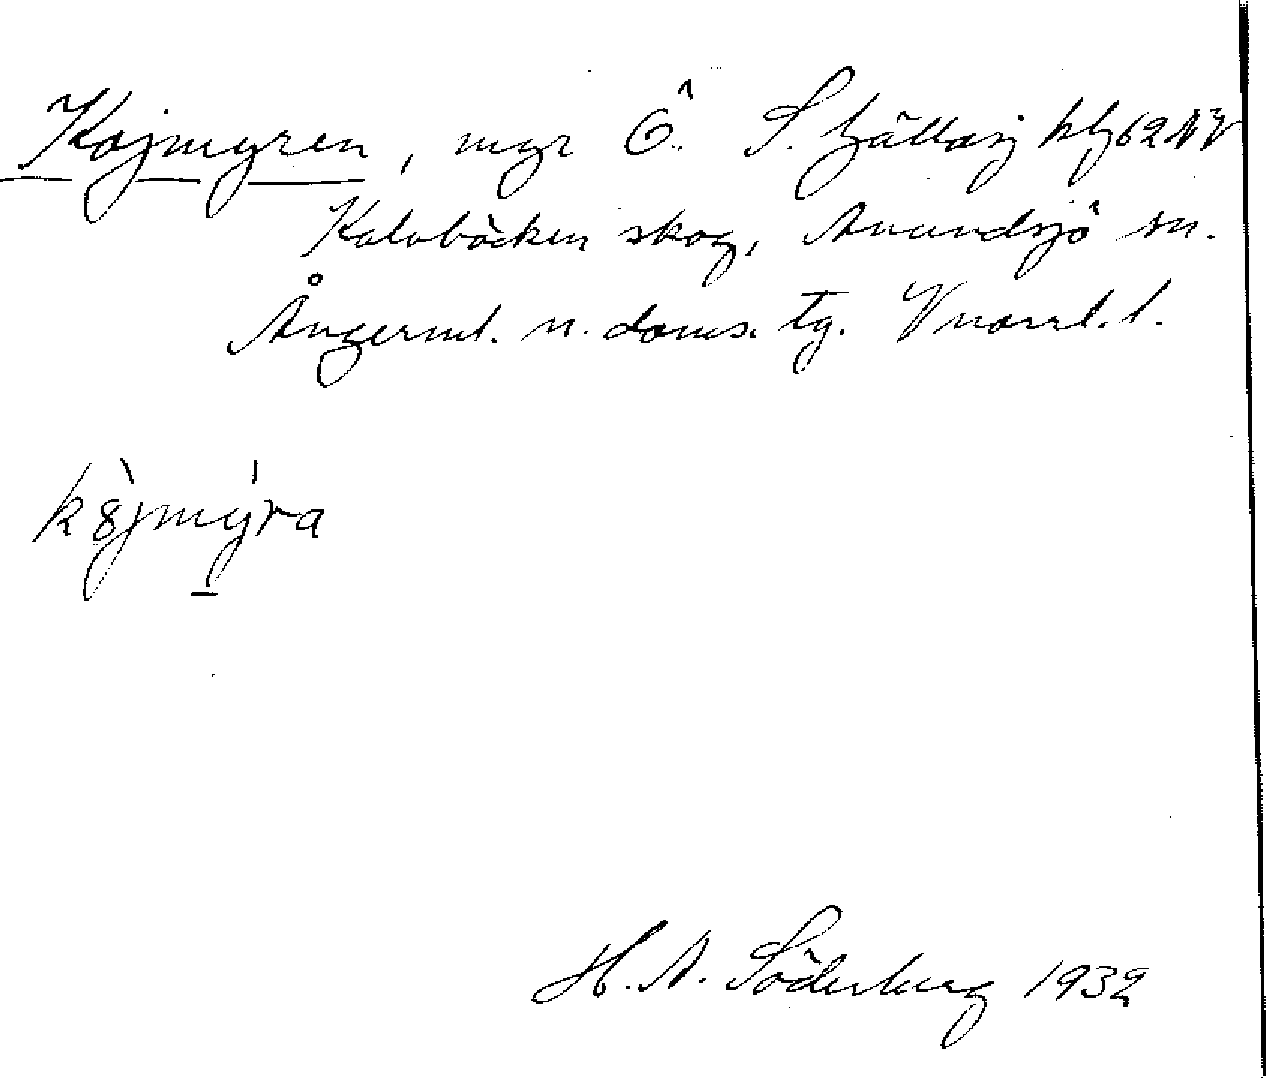 Kojmyren, myr Ö. S. Fjällsjö kbl 62 NV
Kalvbäcken skog, Anundsjö sn.
Ångerml. n. doms. tg. Vnorrl. l.
k8̀jmý̱ra
H. A. Söderberg 1932